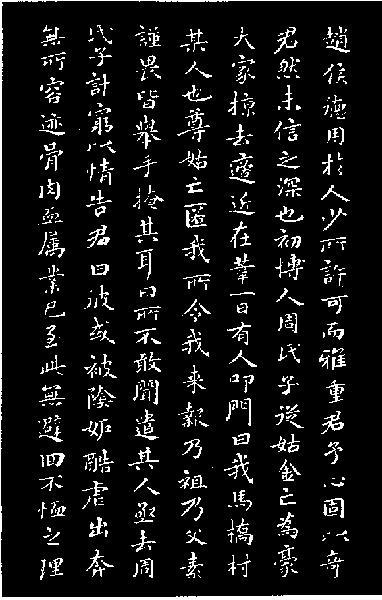 趙侯德用於人少所許可而雅重君予心固以奇
君然未信之深也初博人周氏子從姑金亡為豪
大家掠去密近在莘一日有人叩門曰我馬橋村
某人也尊姑亡匿我所今我來報乃祖乃父素
謹畏皆舉手掩其耳曰所不敢聞遣其人亟去周
氏子計窮以情告君曰彼或被陰妒酷虐出奔
無所容迹骨肉血属業已至此無避回不恤之理